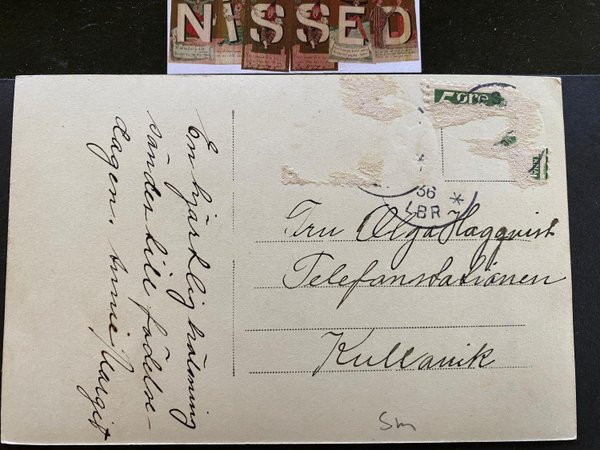 NISSED
En hjärtlig hälsning
sändes till födelse-
dagen. Annie/Margit
5öre
36
LBR *
Fru Olga Hagqvist
Telefonstationen
Kullavik
Sm